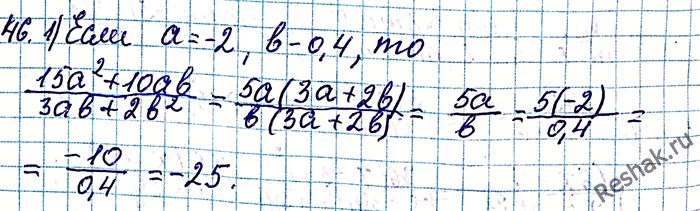 46. 1) Если a=-2, b-0,4, то
(15a²+10ab)/(3ab+2b²) = (5a(3a+2b))/(b(3a+2b)) = 5a/b = 5(-2)/0,4 =
= -10/0,4 = -25.
Reshak.ru